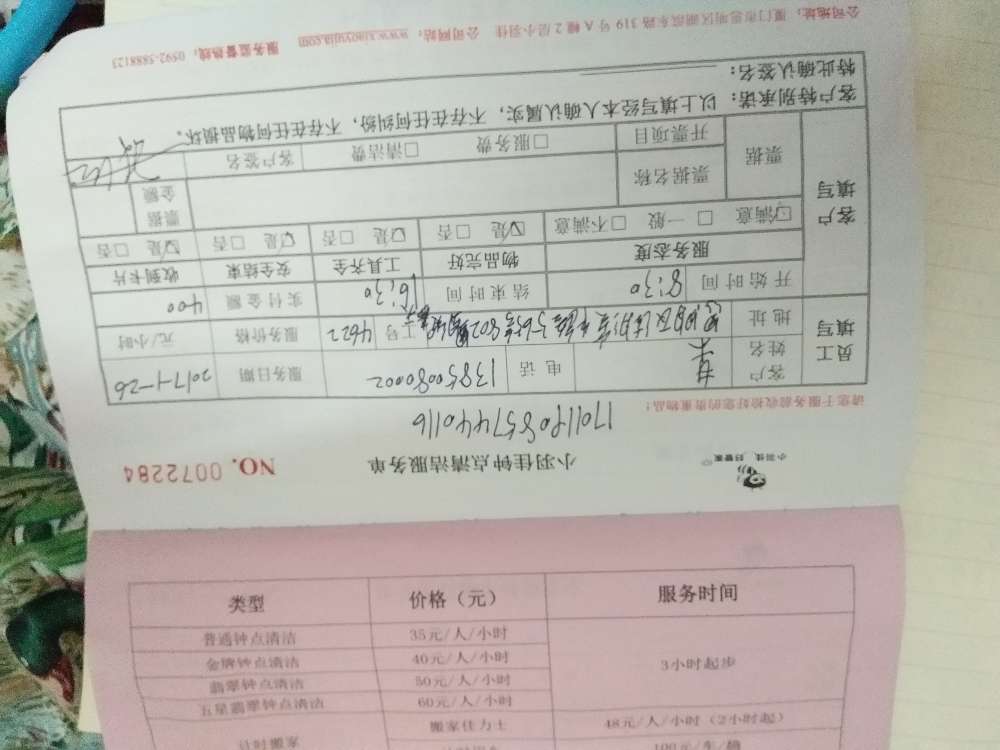 小羽佳 好管家
小羽佳钟点清洁服务单 NO. 0072284
1701190857440116
请您于服务前收捡好您的贵重物品！
员工填写 客户姓名 电话 13850080002 服务日期 2017-1-26
地址 802 工号 4622 服务价格 元/小时
开始时间 8:30 结束时间 16:30 实付金额 400
客户填写 服务态度 物品完好 工具齐全 安全结束 收到卡片
☑满意 □一般 □不满意 ☑是 □否 ☑是 □否 ☑是 □否 ☑是 □否
票据 票据名称 票据金额
开票项目 □服务费 □清洁费 客户签名
客户特别承诺：以上填写经本人确认属实，不存在任何纠纷，不存在任何物品损坏。
特此确认签名：
公司地址：厦门市思明区湖滨东路319号A幢2层小羽佳 公司网站：www.xiaoyujia.com 服务监督热线：0592-5888123
类型 价格（元） 服务时间
普通钟点清洁 35元/人/小时 3小时起步
金牌钟点清洁 40元/人/小时
翡翠钟点清洁 50元/人/小时
五星翡翠钟点清洁 60元/人/小时
计时搬家 搬家佳力士 48元/人/小时（2小时起）
100元/车/趟